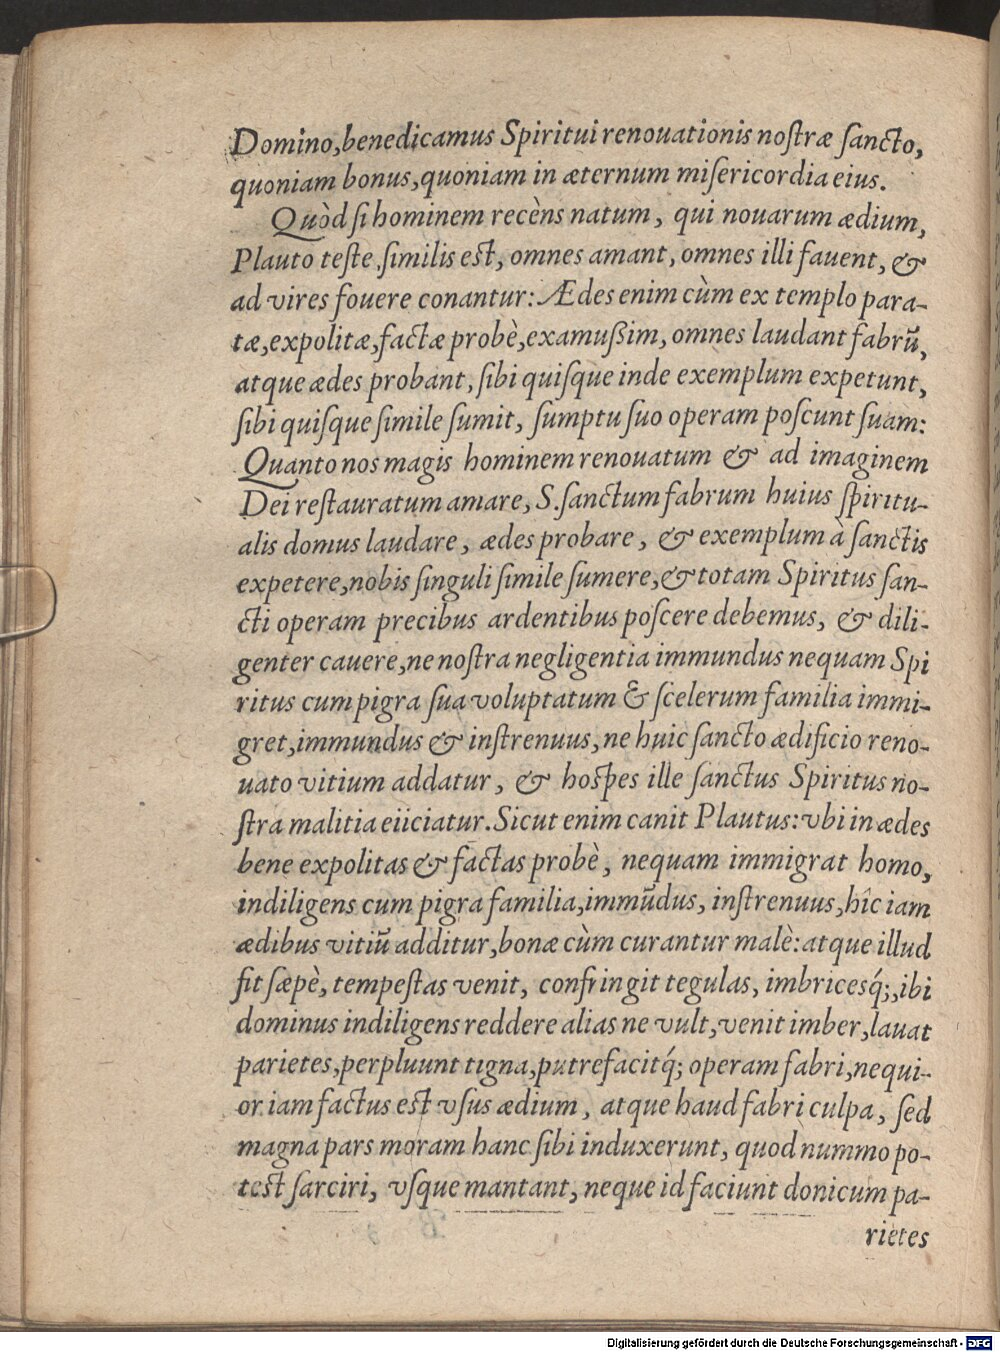 Domino,benedicamus Spiritui renouationis noſtræ ſancto,
quoniam bonus,quoniam in æternum miſericordia eius.
Quòd ſi hominem recèns natum, qui nouarum ædium,
Plauto teſte ſimilis est, omnes amant, omnes illi fauent, &
ad vires fouere conantur: Ædes enim cùm ex templo para-
tæ,expolitæ,factæ probè,examußim, omnes laudant fabrũ,
atque ædes probant, ſibi quiſque inde exemplum expetunt,
ſibi quiſque ſimile ſumit, ſumptu ſuo operam poſcunt ſuam:
Quanto nos magis hominem renouatum & ad imaginem
Dei reſtauratum amare, S.ſanctum fabrum huius ſpiritu-
alis domus laudare, ædes probare, & exemplum à ſanctis
expetere,nobis ſinguli ſimile ſumere,& totam Spiritus ſan-
cti operam precibus ardentibus poſcere debemus, & dili-
genter cauere,ne noſtra negligentia immundus nequam Spi
ritus cum pigra ſua voluptatum & ſcelerum familia immi-
gret,immundus & inſtrenuus,ne huic ſancto ædificio reno-
uato vitium addatur, & hoſpes ille ſanctus Spiritus no-
ſtra malitia eiiciatur. Sicut enim canit Plautus: vbi in ædes
bene expolitas & factas probè, nequam immigrat homo,
indiligens cum pigra familia,immũdus, inſtrenuus,hîc iam
ædibus vitiũ additur,bonæ cùm curantur malè: atque illud
fit ſæpè, tempeſtas venit, confringit tegulas, imbricesq́;,ibi
dominus indiligens reddere alias ne vult,venit imber,lauat
parietes,perpluunt tigna,putrefacitq́; operam fabri,nequi-
or iam factus est vſus ædium, atque haud fabri culpa, ſed
magna pars moram hanc ſibi induxerunt, quod nummo po-
test ſarciri, vſque mantant, neque id faciunt donicum pa-
rietes
Digitalisierung gefördert durch die Deutsche Forschungsgemeinschaft - DFG